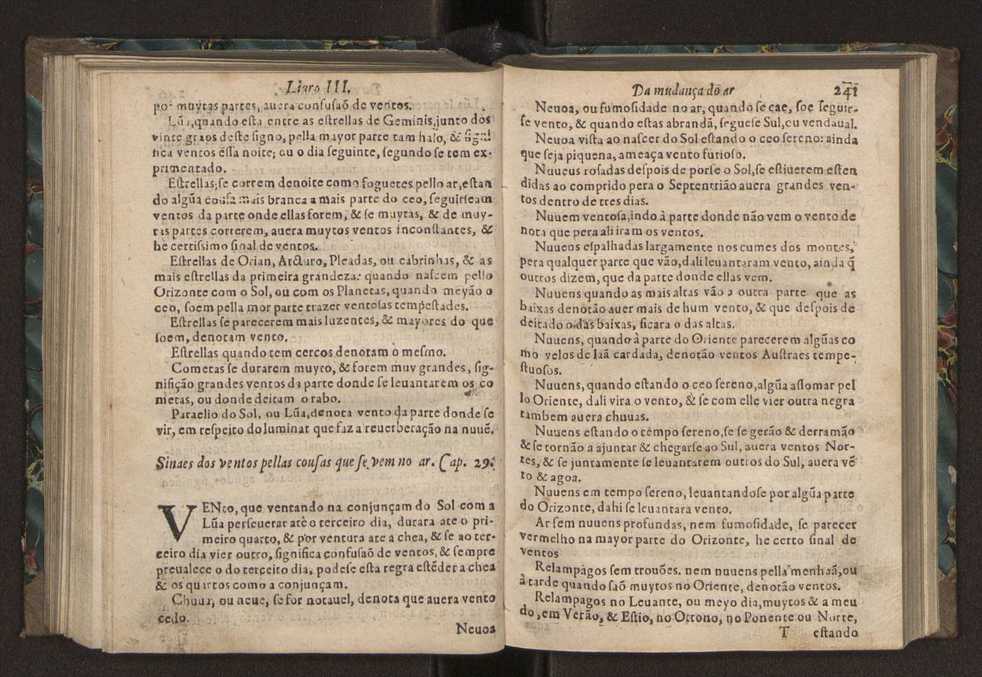 Liuro III.
por muytas partes, auera confusaõ de ventos.
Lũa, quando està entre as estrellas de Geminis, junto dos
vinte graos deste signo, pella mayor parte tam halo, & signi
fica ventos essa noite; ou o dia seguinte, segundo se tem ex-
primentado.
Estrellas, se correm denoite como foguetes pello ar, estan
do algũa cousa mais branca a mais parte do ceo, seguirseam
ventos da parte onde ellas forem, & se muytas, & de muy-
tas partes correrem, auera muytos ventos inconstantes, &
he certissimo sinal de ventos.
Estrellas de Orian, Arcturo, Pleadas, ou cabrinhas, & as
mais estrellas da primeira grandeza: quando nascem pello
Orizonte com o Sol, ou com os Planetas, quando meyão o
ceo, soem pella mor parte trazer ventosas tempestades.
Estrellas se parecerem mais luzentes, & mayores do que
soem, denotam vento.
Estrellas quando tem cercos denotam ò mesmo.
Cometas se durarem muyto, & forem muy grandes, sig-
nifição grandes ventos da parte donde se leuantarem os co
metas, ou donde deitam o rabo.
Paraelio do Sol, ou Lũa, denota vento da parte donde se
vir, em respeito do luminar que faz a reuerberação na nuuẽ.
Sinaes dos ventos pellas cousas que se vem no ar. Cap. 29.
VENto, que ventando na conjunçam do Sol com a
Lũa perseuerar atè o terceiro dia, durara ate o pri-
meiro quarto, & por ventura ate a chea, & se ao ter-
ceiro dia vier outro, significa confusaõ de ventos, & sempre
preualece o do terceiro dia, podese esta regra estẽder a chea
& os quartos como a conjunçam.
Chuua, ou neue, se for notauel, denota que auera vento
cedo.
Neuoa
Da mudança do ar 241
Neuoa, ou fumosidade no ar, quando se cae, soe seguir-
se vento, & quando estas abrandã, seguese Sul, ou vendaual.
Neuoa vista ao nascer do Sol estando o ceo sereno: ainda
que seja piquena, ameaça vento furioso.
Nuueus rosadas despois de porse o Sol, se estiuerem esten
didas ao comprido pera o Septentrião auera grandes ven-
tos dentro de tres dias.
Nuuem ventosa, indo à parte donde não vem o vento de
nota que pera ali iram os ventos.
Nuuens espalhadas largamente nos cumes dos montes,
pera qualquer parte que vão, dali leuantaram vento, ainda q̃
outros dizem, que da parte donde ellas vem.
Nuuens quando as mais altas vão a outra parte que as
baixas denotão auer mais de hum vento, & que despois de
deitado o das baixas, ficara o das altas.
Nuuens, quando à parte do Oriente parecerem algũas co
mo velos de laã cardada, denotão ventos Austraes tempe-
stuosos.
Nuuens, quando estando o ceo sereno, algũa assomar pel
lo Oriente, dali vira o vento, & se com elle vier outra negra
tambem auera chuuas.
Nuuens estando o tempo sereno, se se gerão & derramão
& se tornão a ajuntar & chegarse ao Sul, auera ventos Nor-
tes, & se juntamente se leuantarem outros do Sul, auera vẽ
to & agoa.
Nuuens em tempo sereno, leuantandose por algũa parte
do Orizonte, dahi se leuantara vento.
Ar sem nuuens profundas, nem fumosidade, se parecer
vermelho na mayor parte do Orizonte, he certo sinal de
ventos
Relampagos sem trouões. nem nuuens pella menhaã, ou
à tarde quando saõ muytos no Oriente, denotão ventos.
Relampagos no Leuante, ou meyo dia, muytos & a meu
do, em Verão, & Estio, no Otono, no Ponente ou Norte,
T estando